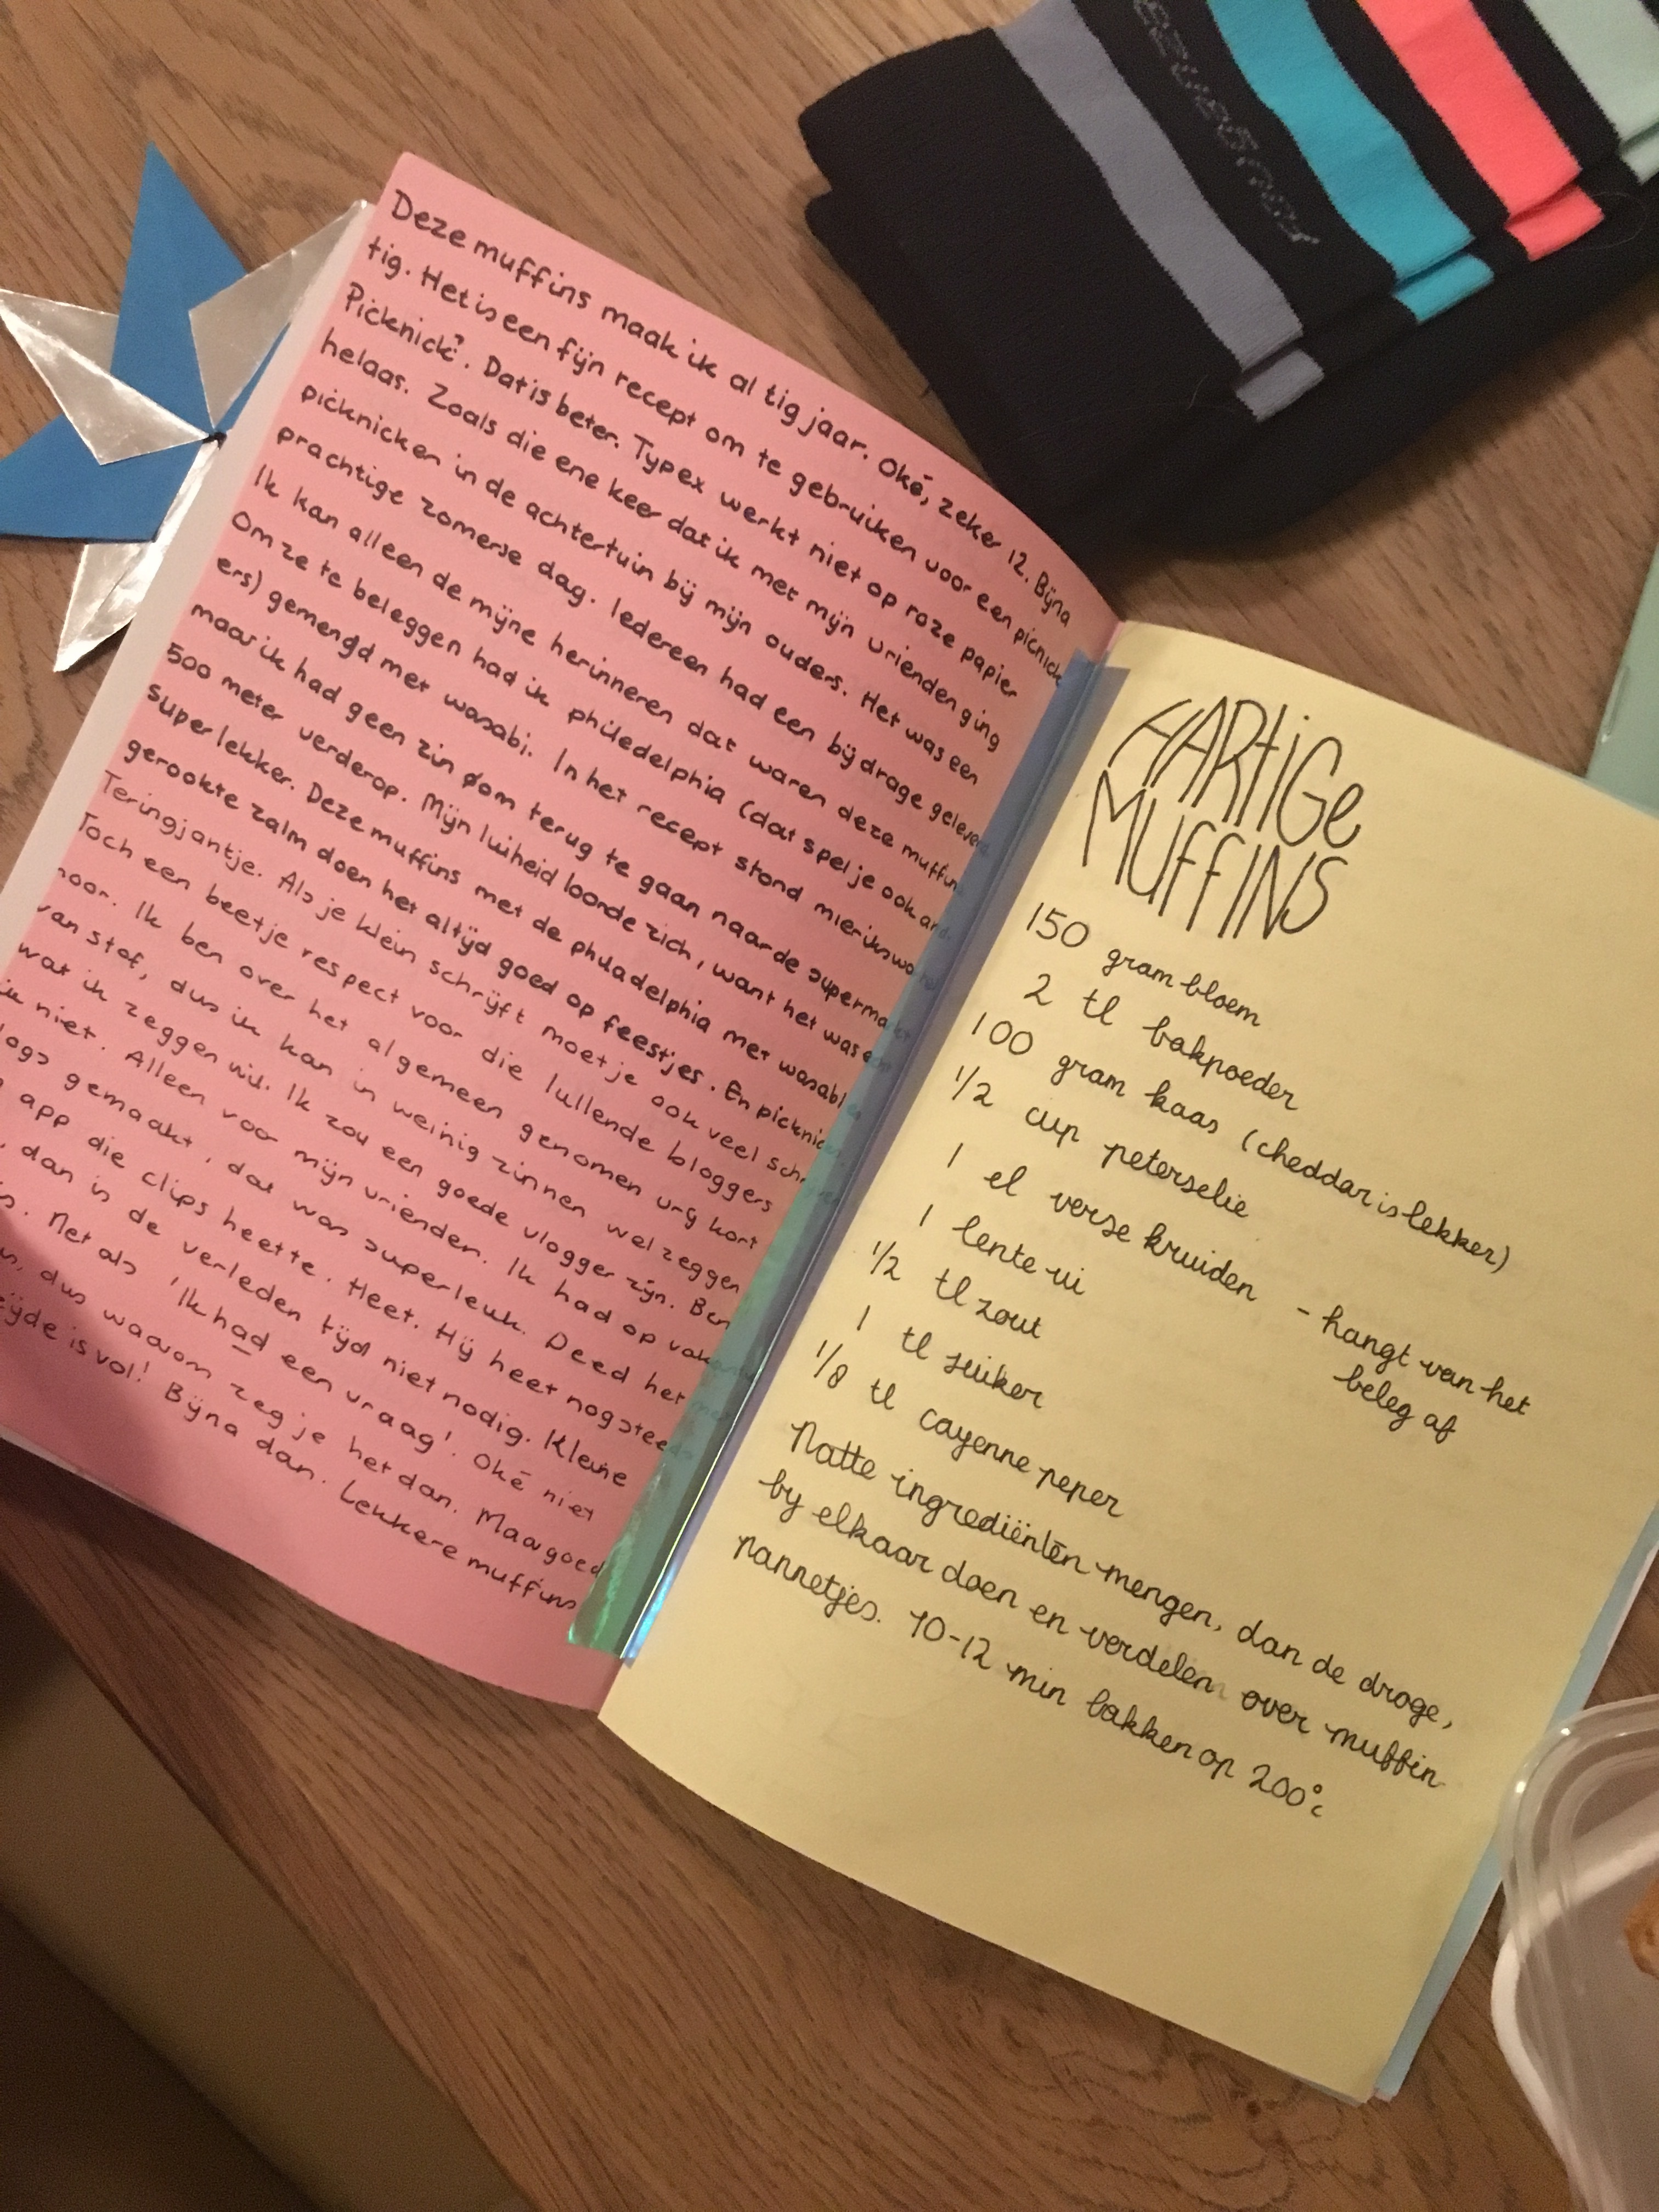 Deze muffins maak ik al tig jaar. Oké, zeker 12. Bijna
tig. Het is een fijn recept om te gebruiken voor een picnick
Picknick?. Dat is beter. Typex werkt niet op roze papier
helaas. Zoals die ene keer dat ik met mijn vrienden ging
picknicken in de achtertuin bij mijn ouders. Het was een
prachtige zomerse dag. Iedereen had een bijdrage geleverd
Ik kan alleen de mijne herinneren dat waren deze muffins
Om ze te beleggen had ik philedelphia (dat spel je ook and
ers) gemengd met wasabi. In het recept stond mierikswortel
maar ik had geen zin om terug te gaan naar de supermarkt
500 meter verderop. Mijn luiheid loonde zich, want het was een
superlekker. Deze muffins met de philadelphia met wasabi en
gerookte zalm doen het altijd goed op feestjes. En picknic
Teringjantje. Als je klein schrijft moet je ook veel
Toch een beetje respect voor die lullende bloggers
hoor. Ik ben over het algemeen genomen vrij kort
van stof, dus ik kan in weinig zinnen wel zeggen
wat ik zeggen wil. Ik zou een goede vlogger zijn. Ben
ik niet. Alleen voor mijn vrienden. Ik had op
logs gemaakt, dat was superleuk. Deed het
app die clips heette. Heet. Hij heet nog steeds
dan is de verleden tijd niet nodig. Kleine
Net als 'Ik had een vraag'. Oké niet
dus waarom zeg je het dan. Maar goed
is vol! Bijna dan. Lekkere muffins
HARTIGE
MUFFINS
150 gram bloem
2 tl bakpoeder
100 gram kaas (cheddar is lekker)
1/2 cup peterselie
1 el verse kruiden - hangt van het
beleg af
1 lente ui
1/2 tl zout
1 tl suiker
1/8 tl cayenne peper
Natte ingrediënten mengen, dan de droge,
by elkaar doen en verdelen over muffin
pannetjes. 10-12 min bakken op 200°c